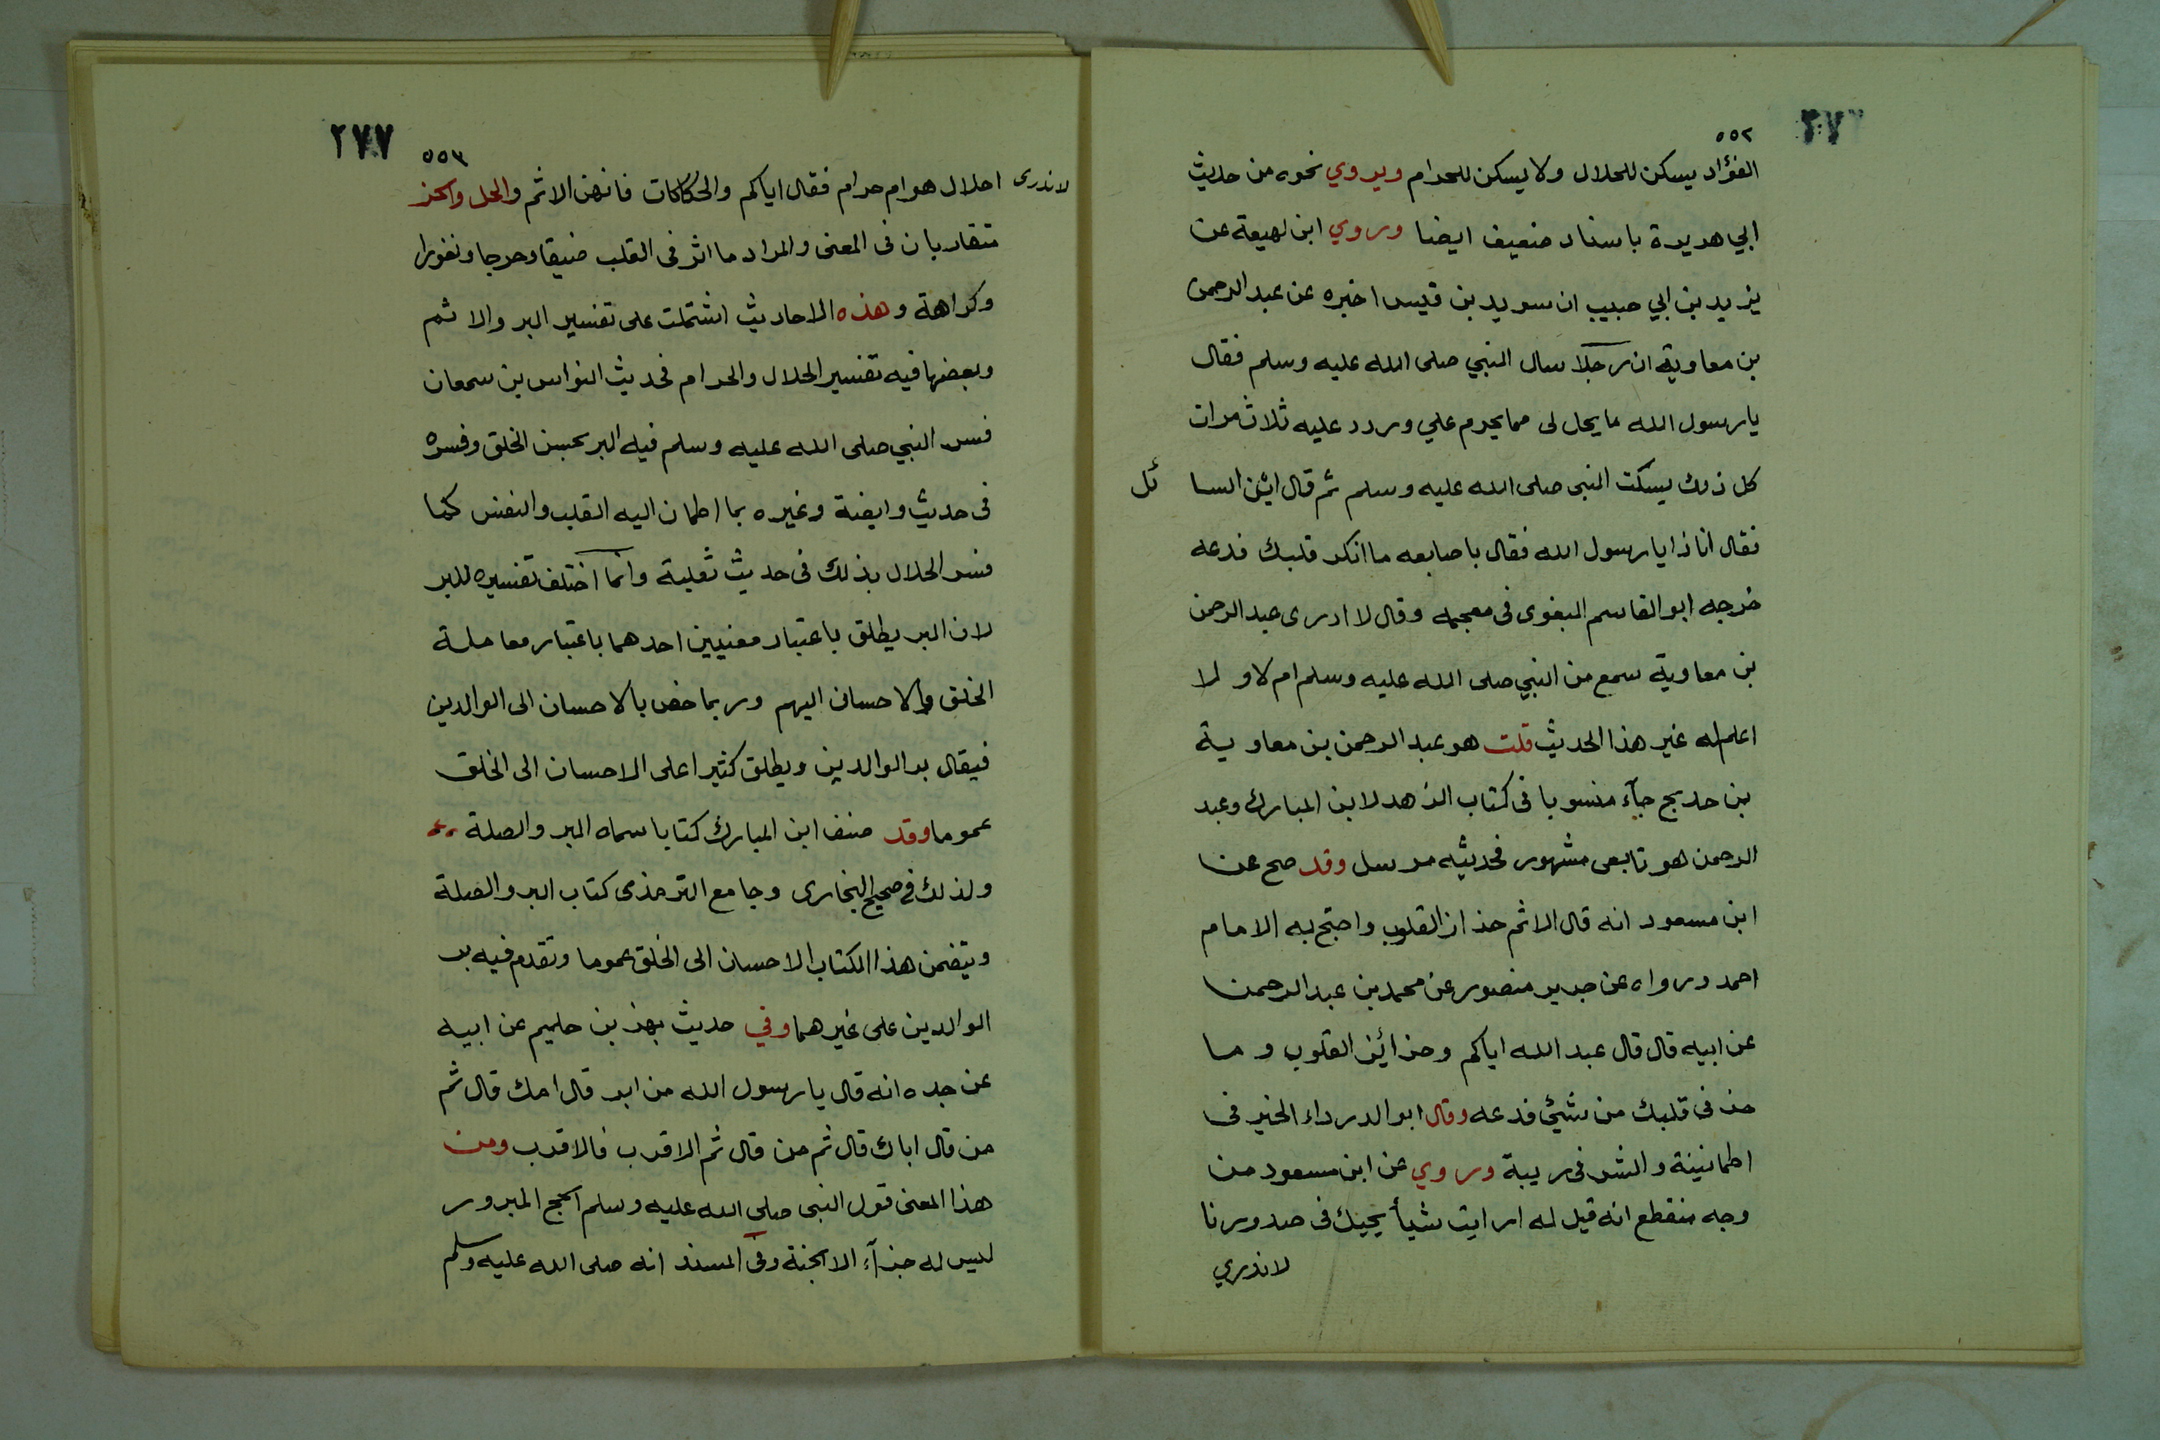 ٥٥٢
الفؤاد يسكن للحلال ولا يسكن للحرام ويروي نحوه من حديث
ابي هريرة باسناد ضعيف ايضا وروي ابن لهيعة عن
يزيد بن ابي حبيب ان سويد بن قيس اخبره عن عبد الرحمن
بن معاوية ان رجلا سال النبي صلى الله عليه وسلم فقال
يا رسول الله ما يحل لى مما يحرم علي وردد عليه ثلاث مرات
كل ذلك يسكت النبى صلى الله عليه وسلم ثم قال اين السائل
فقال انا ذا يا رسول الله فقال باصابعه ما انكر قلبك فدعه
خرجه ابو القاسم البغوى فى معجمه وقال لا ادرى عبد الرحمن
بن معاوية سمع من النبي صلى الله عليه وسلم ام لا ولا
اعلم له غير هذا الحديث قلت هو عبد الرحمن بن معاوية
بن حديج جآء منسوبا فى كتاب الزهد لابن المبارك وعبد
الرحمن هو تابعى مشهور فحديثه مرسل وقد صح عن
ابن مسعود انه قال الاثم حزاز القلوب واحتج به الامام
احمد ورواه عن جرير منصور عن محمد بن عبد الرحمن
عن ابيه قال قال عبد الله اياكم وحزائز القلوب وما
حز فى قلبك من شيئ فدعه وقال ابو الدرداء الخير فى
اطمانينة والشر فى ريبة وروي عن ابن مسعود من
وجه منقطع انه قيل له ارايت شيأ يحيك فى صدورنا
لاندري
٢٧٧
٥٥٣
لاندرى احلال هو ام حرام فقال اياكم والحكاكات فانهن الاثم والحل والحز
متقاربان فى المعنى والمراد ما اثر فى القلب ضيقا وحرجا ونفورا
وكراهة وهذه الاحاديث اشتملت على تفسير البر والاثم
وبعضها فيه تفسير الحلال والحرام فحديث النواس بن سمعان
فسر النبي صلى الله عليه وسلم فيه البر بحسن الخلق وفسره
فى حديث وابضة وغيره بما اطمان اليه القلب والنفس كما
فسر الحلال بذلك فى حديث ثعلبة وانما اختلف تفسيره للبر
لان البر يطلق باعتبار معنيين احدهما باعتبار معاملة
الخلق والاحسان اليهم وربما خص بالاحسان الى الوالدين
فيقال بر الوالدين ويطلق كثيرا على الاحسان الى الخلق
عموما وقد صنف ابن المبارك كتابا سماه البر والصلة
ولذلك في صحيح البخارى وجامع الترمذى كتاب البر والصلة
ويتضمن هذا الكتاب الاحسان الى الخلق عموما وتقدم فيه بر
الوالدين على غيرهما وفي حديث بهز بن حكيم عن ابيه
عن جده انه قال يا رسول الله من ابر قال امك قال ثم
من قال اباك قال ثم من قال ثم الاقرب فالاقرب ومن
هذا المعنى قول النبى صلى الله عليه وسلم الحج المبرور
ليس له جزآء الا الجنة وفى المسند انه صلى الله عليه وسلم